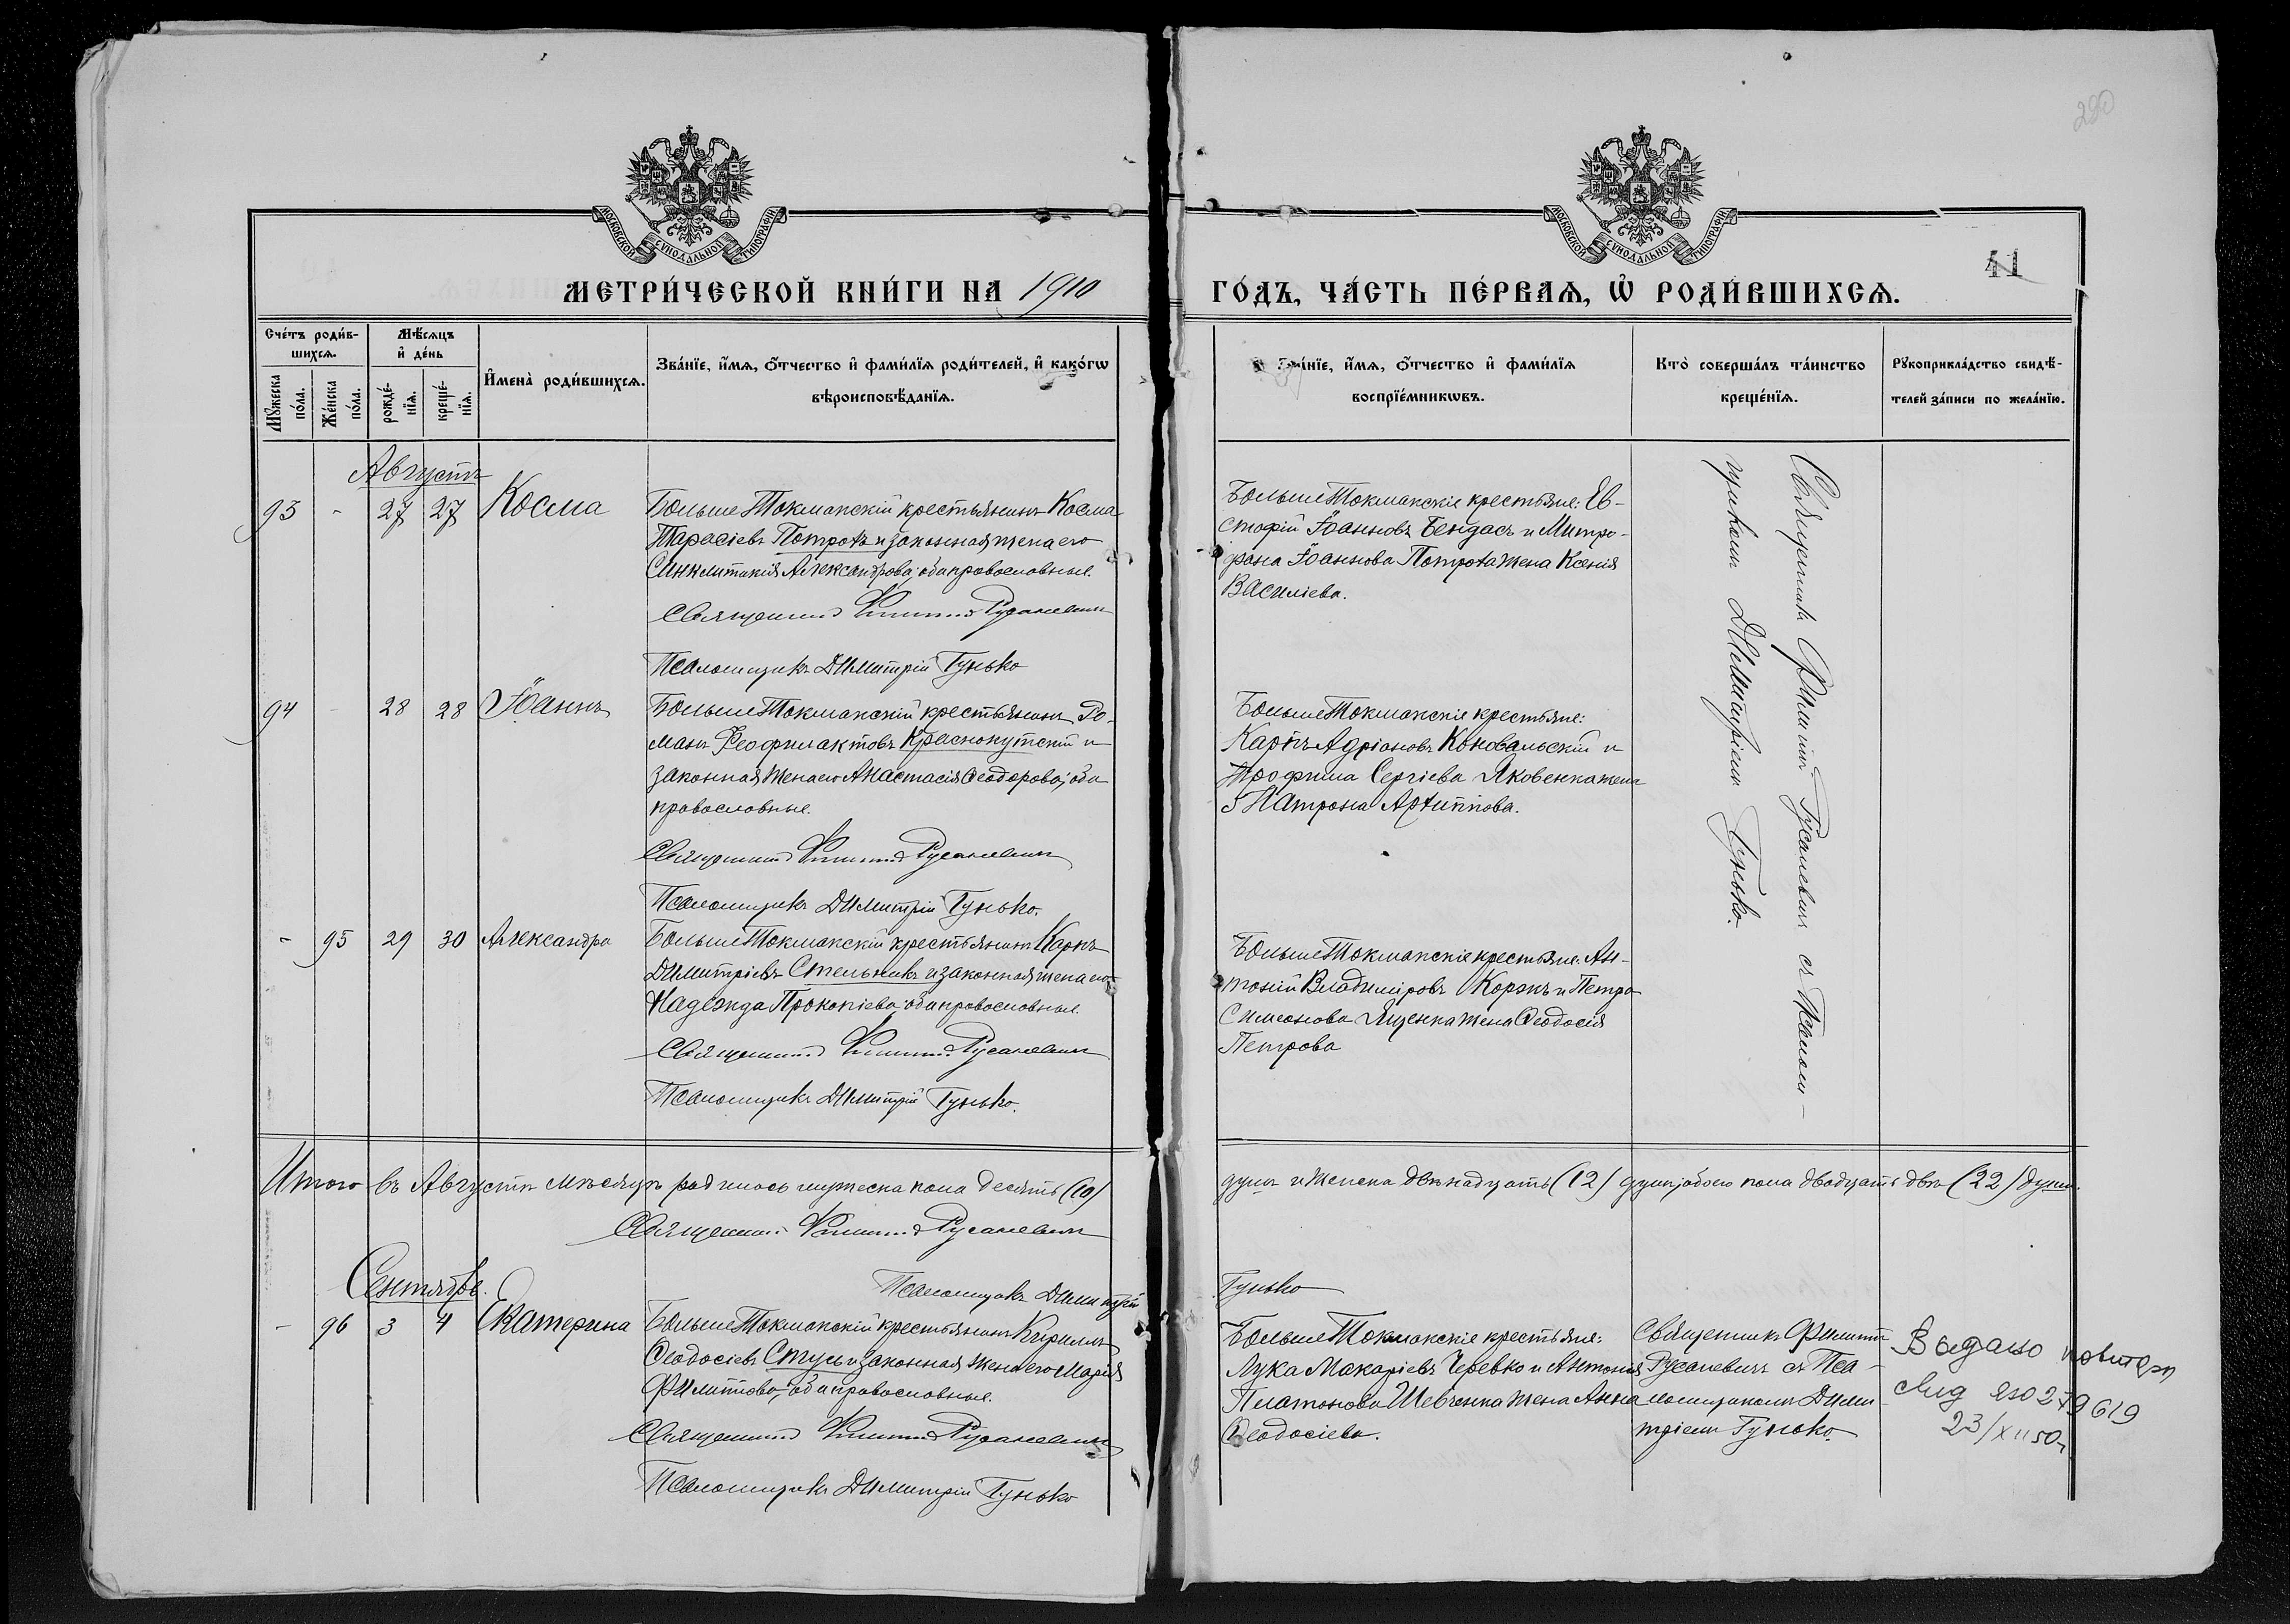 290
МОСКОВСКОЙ СѴНОДАЛЬНОЙ ТИПОГРАФІИ
МОСКОВСКОЙ СѴНОДАЛЬНОЙ ТИПОГРАФІИ
41
МЕТРИ́ЧЕСКОЙ КНИ́ГИ НА 1910
ГО́ДЪ, ЧА́СТЬ ПЕ́РВАѦ, Ѡ҆ РОДИ́ВШИХСѦ.
Сче́тъ роди́в-
шихсѧ.
Мꙋ́жеска
по́ла.
Же́нска
по́ла.
Мѣ́сѧцъ
и҆ де́нь
рожде́-
нїѧ.
креще́-
нїѧ.
И҆мена̀ роди́вшихсѧ.
Зва́нїе, и҆́мѧ, ѻ҆́тчество и҆ фами́лїѧ роди́телей, и҆ како́гѡ
вѣроисповѣ́данїѧ.
Зва́нїе, и҆́мѧ, ѻ҆́тчество и҆ фами́лїѧ
воспрїе́мникѡвъ.
Кто̀ соверша́лъ та́инство
креще́нїѧ.
Рꙋкоприкла́дство свидѣ́-
телей за́писи по жела́нїю.
Августъ
93 - 27 27 Косма
БольшеТокмакскій крестьянинъ Косма
Тарасіевъ Потрохъ и законная жена его
Синклитикія Александрова; оба православные.
Священникъ Филиппъ Русаневичъ
Псаломщикъ Димитрій Гунько
БольшеТокмакскіе крестьяне: Ев-
стафій Іоанновъ Бендасъ и Митро-
фана Іоаннова Потроха жена Ксенія
Василіева.
94 - 28 28 Іоаннъ
БольшеТокмакскій крестьянинъ Ро-
манъ Феофилактовъ Краснокутскій и
законная жена его Анастасія Ѳеодорова; оба
православные.
Священникъ Филиппъ Русаневичъ
Псаломщикъ Димитрій Гунько.
БольшеТокмакскіе крестьяне:
Карпъ Адріановъ Коновальскій и
Трофима Сергіева Яковенка жена
Матрона Архиппова.
- 95 29 30 Александра
БольшеТокмакскій крестьянинъ Карпъ
Димитріевъ Стельникъ и законная жена его
Надежда Прокопіева; оба православные.
Священникъ Филиппъ Русаневичъ
Псаломщикъ Димитрій Гунько.
БольшеТокмакскіе крестьяне: Ан-
тоній Владиміровъ Коржъ и Петра
Симеонова Яценка жена Ѳеодосія
Петрова
Священникъ Филиппъ Русаневичъ съ Псалом-
щикомъ Димитріемъ Гунько.
Итого въ Августѣ мѣсяцѣ родилось мужеска пола десять (10)
душъ и женска двѣнадцать (12) душъ, обоего пола двадцать двѣ (22) души.
Священникъ Филиппъ Русаневичъ
Псаломщикъ Димитрій
Гунько
Сентябрь.
- 96 3 4 Екатерина
БольшеТокмакскій крестьянинъ Кириллъ
Ѳеодосіевъ Стусь и законная жена его Марія
Филиппова; оба православные.
Священникъ Филиппъ Русаневичъ
Псаломщикъ Димитрій Гунько
БольшеТокмакскіе крестьяне:
Лука Макаріевъ Черевко и Антонія
Платонова Шевченка жена Анна
Ѳеодосіева.
Священникъ Филиппъ
Русаневичъ съ Пса-
ломщикомъ Дими-
тріемъ Гунько.
Выдано повторн
свид яю 279619
23/XII 50г